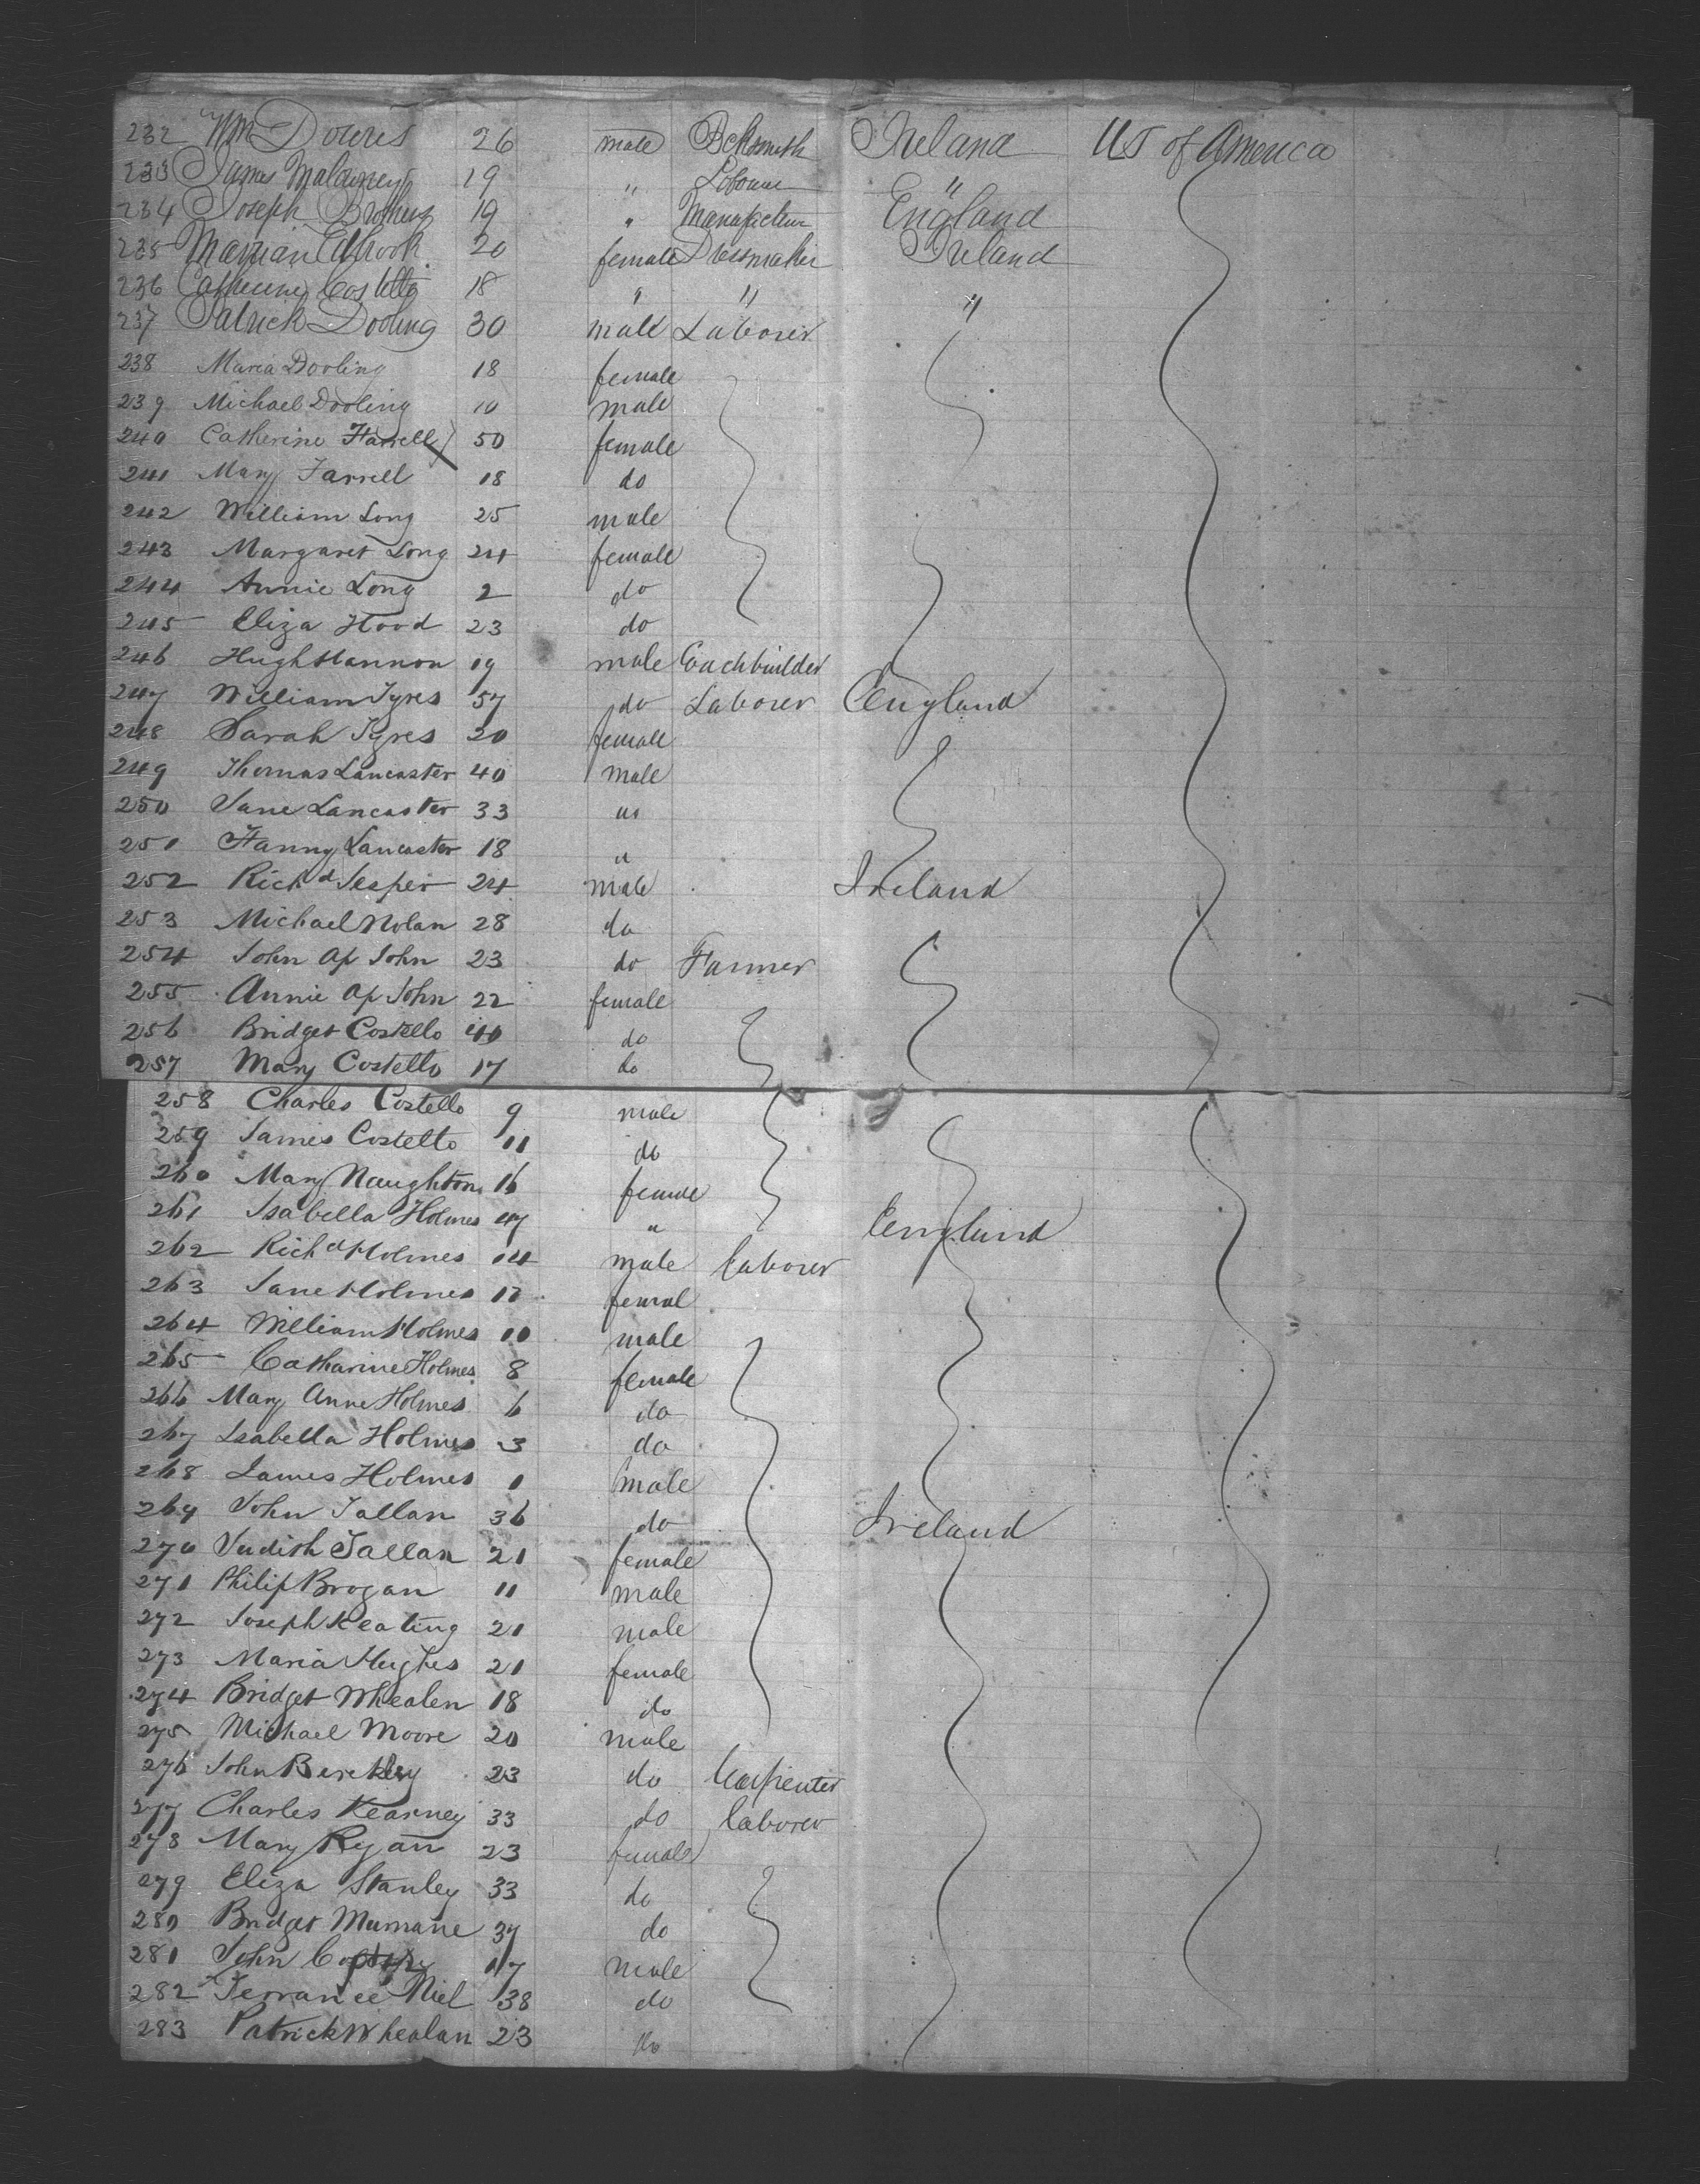 232 Wm Downes 26 male Bcksmith Ireland US of America
233 James Malowney 19 " Laborer "
234 Joseph 19 " Manufacturer England
235 Marrian 20 female Dressmaker Ireland
236 Catherine Costello 18 " " "
237 Patrick Dooling 30 male Laborer
238 Maria Dooling 18 female
239 Michael Dooling 10 male
240 Catherine Farrell 50 female
241 Mary Farrell 18 do
242 William Long 25 male
243 Margaret Long 24 female
244 Annie Long 2 do
245 Eliza Hood 23 do
246 Hugh Hannon 19 male Coachbuilder
247 William Tyres 57 do Laborer England
248 Sarah Tyres 20 female
249 Thomas Lancaster 40 male
250 Jane Lancaster 33
251 Fanny Lancaster 18 "
252 Richd Jesper 24 male Ireland
253 Michael Nolan 28 do
254 John Ap John 23 do Farmer
255 Annie Ap John 22 female
256 Bridget Costello 40 do
257 Mary Costello 17 do
258 Charles Costello 9 male
259 James Costello 11 do
260 Mary Naughton 16 female
261 Isabella Holmes 47 " England
262 Richd Holmes 14 male laborer
263 Jane Holmes femal
264 William Holmes 10 male
265 Catharine Holmes 8 female
266 Mary Anne Holmes 6 do
267 Isabella Holmes 3 do
268 James Holmes 1 male
269 John Tallan 36 do Ireland
270 Judith Tallan 21 female
271 Philip Brogan 11 male
272 Joseph Keating 21 male
273 Maria Hughes 21 female
274 Bridget Whealen 18 do
275 Michael Moore 20 male
276 John 23 do Carpenter
277 Charles Kearney 33 do laborer
278 Mary Ryan 23 female
279 Eliza Stanley 33 do
280 Bridget Murnane 37 do
281 John 17 male
282 Terrance Niel 38 do
283 Patrick Whealan 23 do